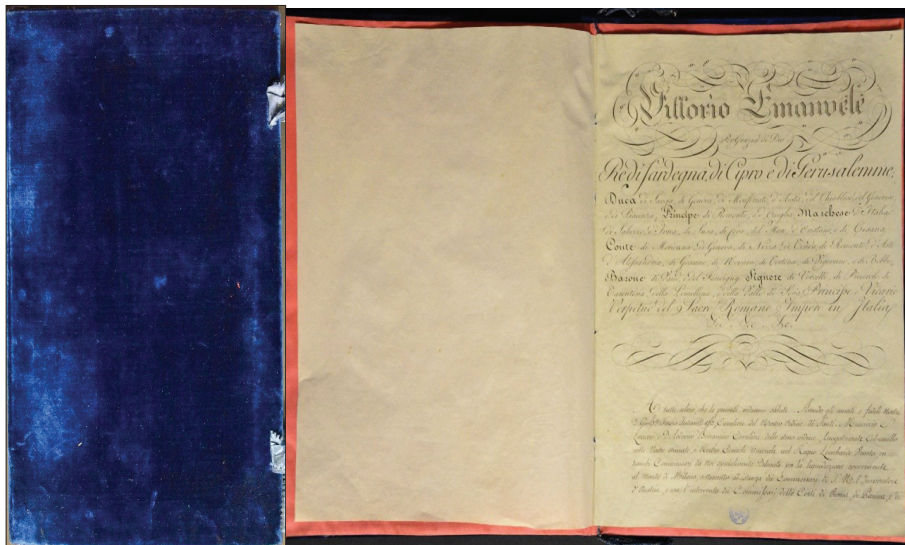 Vittorio Emanuele
Per Grazia di Dio
Re di Sardegna, di Cipro e di Gerusalemme,
Duca di Savoja, di Genova, di Monferrato, d'Aosta, del Chiablese, del Genevese
e di Piacenza, Principe di Piemonte, di Oneglia, Marchese d'Italia
di Saluzzo, d'Ivrea, di Susa, di Ceva, del Maro, di Oristano, e di Cesana
Conte di Moriana, di Geneva, di Nizza, di Tenda, di Romonte, d'Asti
d'Alessandria, di Goceano, di Novara, di Tortona, di Vigevano, e di Bobbio,
Barone di Vaud, e del Faucigny, Signore di Vercelli, di Pinerolo, di
Tarantasia, della Lomellina, e della Valle di Sesia, Principe e Vicario
Perpetuo del Sacro Romano Impero in Italia,
Ad tutti coloro, che le presenti vedranno salute. Avendo gli amati e fedeli Nostri
Cavaliere del Nostro Ordine de' Santi Maurizio e
Lazzaro, e Cavaliere dello stess' ordine, Luogotenente Colonnello
nelle Nostre armate, e Nostro Console Generale nel Regno Lombardo Veneto, in
Commissarj da noi specialmente Delegati per la liquidazione concernente
il monte di Milano, sottoscritto di Commissario di S. M. l'Imperatore
d'Austria, e con l'intervento de' Commissarj delle Corti di Roma, di Parma, e di